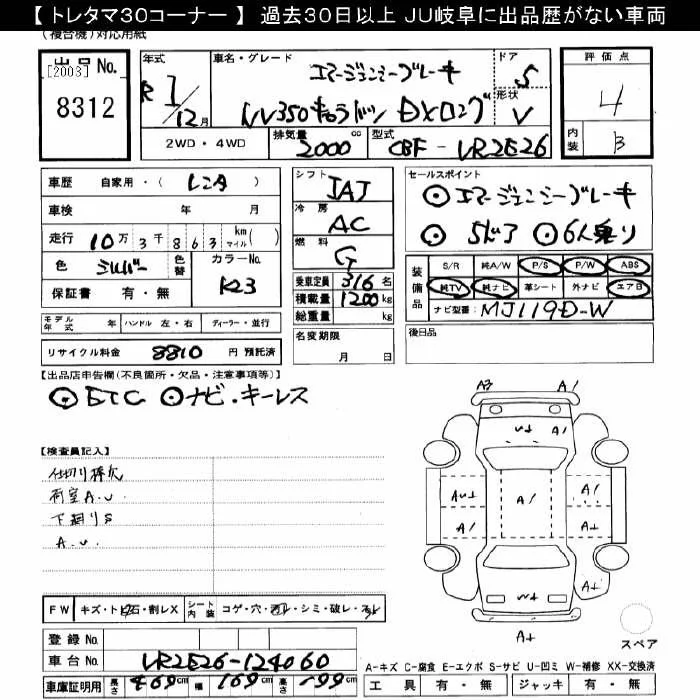 【 トレタマ30コーナー 】 過去30日以上 JU岐阜に出品歴がない車両
(複合機)対応用紙
出品No.
[2003]
8312
年式
R 1/12月
車名・グレード
エマージェンシーブレーキ
NV350キャラバン DXロング
ドア
5
形状
V
評価点
4
内装
B
2WD・4WD
排気量
2000 cc
型式
CBF-VR2E26
車歴 自家用・( レンタ )
車検 年 月
走行 10万3千863 km マイル( )
色 シルバー
色替
カラーNo.
K23
保証書 有・無
シフト
IAT
冷房
AC
燃料
G
乗車定員 3/6名
積載量 1200 kg
総重量 kg
セールスポイント
⊙エマージェンシーブレーキ
⊙ 5ドア ⊙6人乗り
装備品
S/R 純A/W P/S P/W ABS
純TV 純ナビ 革シート 外ナビ エアB
ナビ型番 MJ119D-W
モデル年式 年 ハンドル 左・右 ディーラー・並行
リサイクル料金 8810 円 預託済
名変期限
月 日
後日品
【出品店申告欄(不良箇所・欠品・注意事項等)】
⊙ETC ⊙ナビ・キーレス
【検査員記入】
仕切り棒欠
荷室A.U
下廻りS
A.U.
A3 A1
A1
A1
A1
A1
A1
FW キズ・ト石・割レX シート内装 コゲ・穴・シミ・破レ
登録No.
車台No. VR2E26-124060
車庫証明用 長さ 469cm 幅 169cm 高さ 199cm
スペア
A-キズ C-腐食 E-エクボ S-サビ U-凹ミ W-補修 XX-交換済
工具 有・無 ジャッキ 有・無